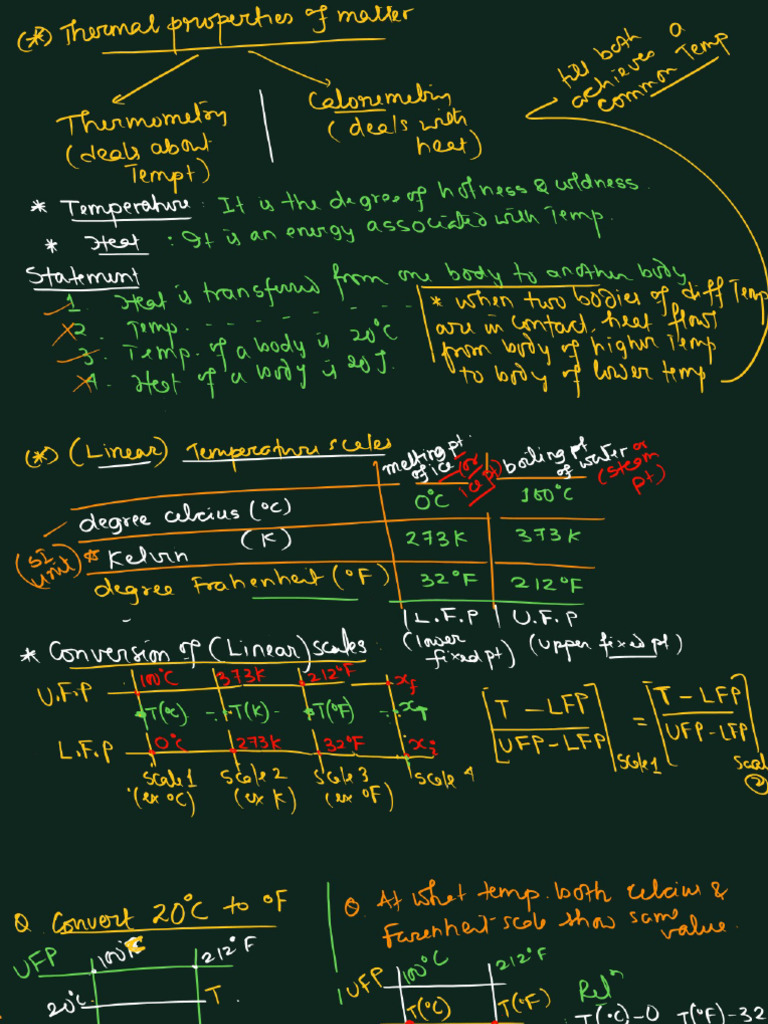 (*) Thermal properties of matter
Thermometry
(deals about
Tempt)
Calorimetry
(deals with
heat)
till both
achieves a
common Temp
* Temperature : It is the degree of hotness & coldness.
* Heat : It is an energy associated with Temp.
Statement
1. Heat is transferred from one body to another body
2. Temp. - - - - - - -
3. Temp. of a body is 20°C
4. Heat of a body is 20J.
* when two bodies of diff Temp
are in contact, heat flows
from body of higher Temp
to body of lower temp
(*) (Linear) Temperature scales
melting pt.
of ice (or
ice pt)
boiling pt
of water or
(steam
pt)
degree celcius (°C) 0°C 100°C
(SI
unit) * Kelvin (K) 273K 373K
degree Frahenheit (°F) 32°F 212°F
L.F.P U.F.P
(lower
fixed pt)
(upper fixed pt)
* Conversion of (Linear) scales :
U.F.P 100°C 373K 212°F xf
T(°C) T(K) T(°F) xT
L.F.P 0°C 273K 32°F xi
scale 1 scale 2 scale 3 scale 4
(ex °C) (ex K) (ex °F)
[T - LFP / UFP - LFP] scale 1 = [T - LFP / UFP - LFP] scale 2
Q. Convert 20°C to °F
UFP 100°C 212°F
20°C T
Q. At what temp. both celcius &
Farenheit scale show same
value.
UFP 100°C 212°F
T(°C) T(°F)
Relⁿ
T(°C)-0 T(°F)-32